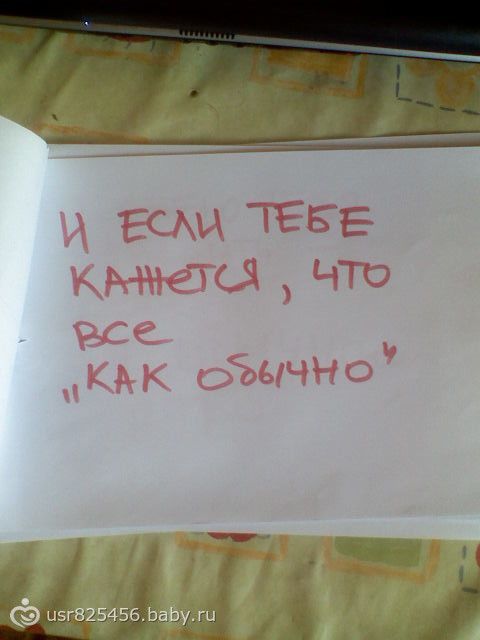 И ЕСЛИ ТЕБЕ
КАЖЕТСЯ, ЧТО
ВСЕ
„КАК ОБЫЧНО"
usr825456.baby.ru